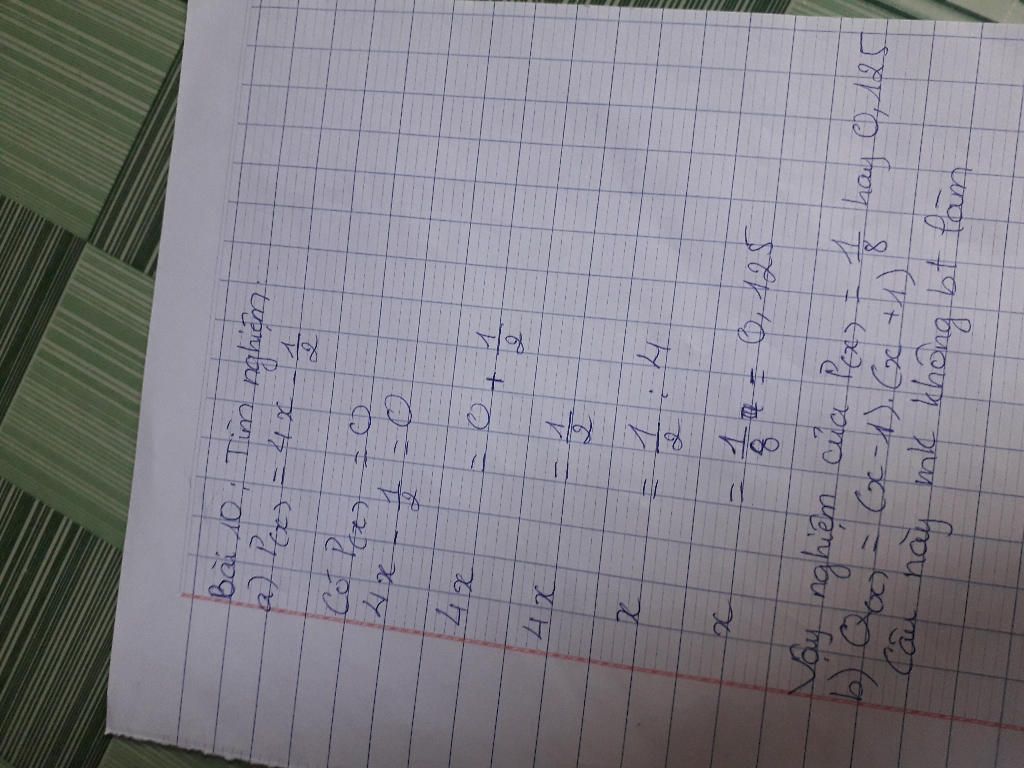 Bài 10: Tìm nghiệm.
a) P(x) = 4x - 1/2
Có P(x) = 0
4x - 1/2 = 0
4x = 0 + 1/2
4x = 1/2
x = 1/2 : 4
x = 1/8 = 0,125
Vậy nghiệm của P(x) = 1/8 hay 0,125
b) Q(x) = (x - 1).(x + 1)
Câu này mk không bt làm